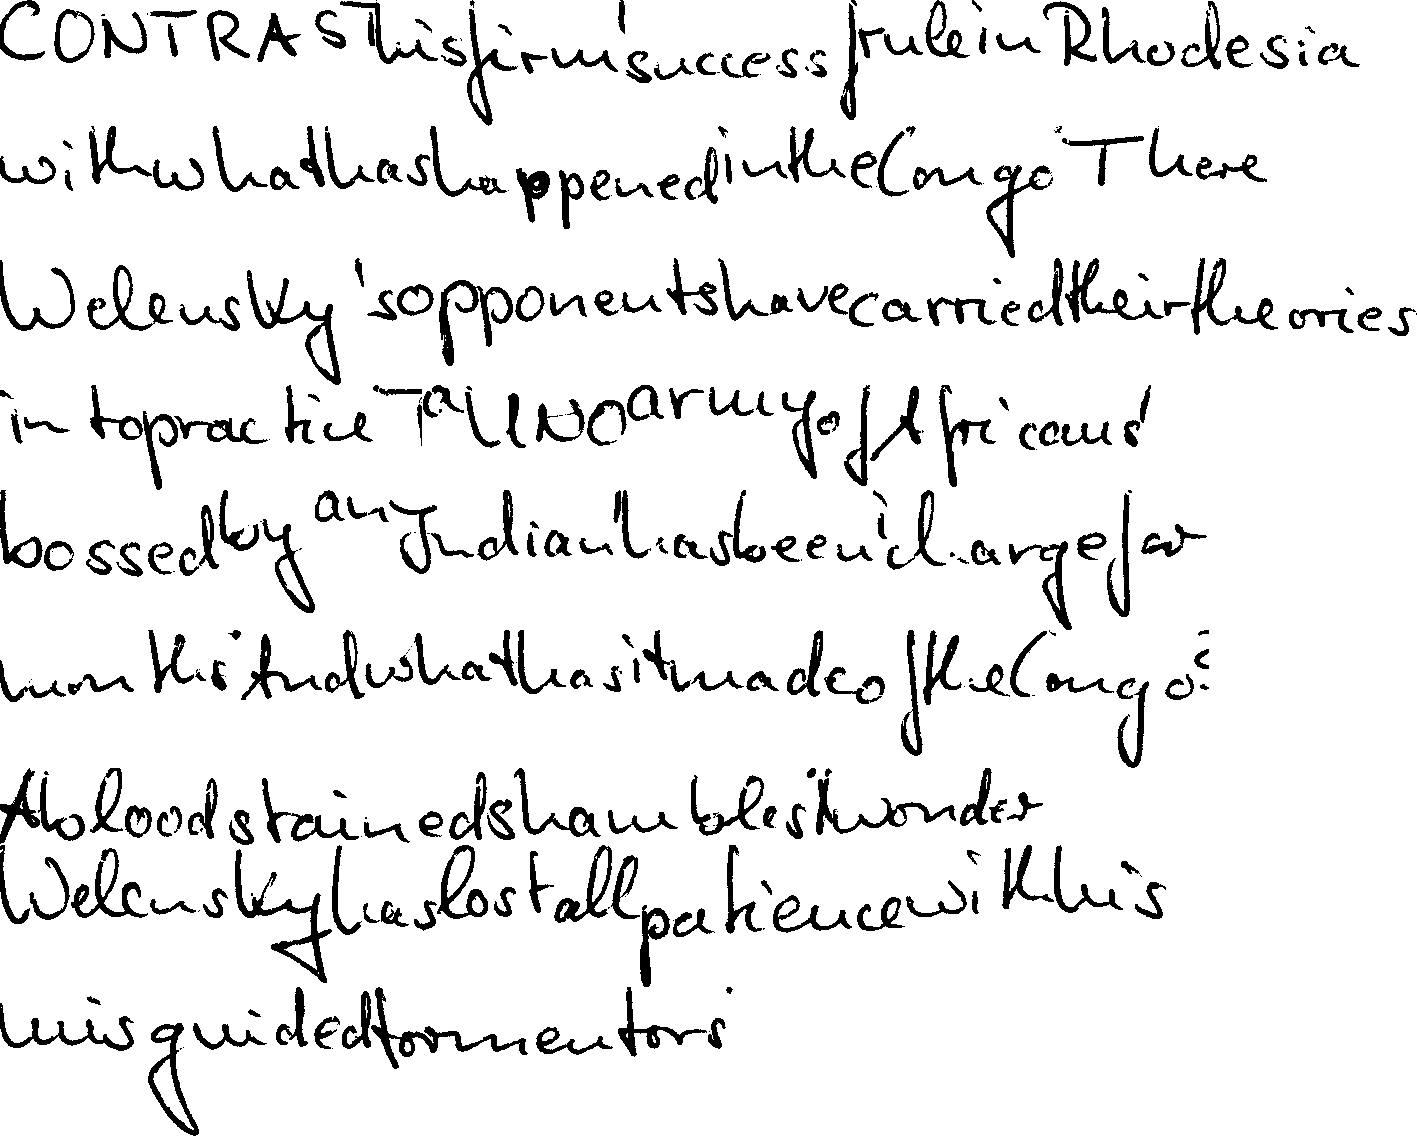 CONTRAST his firm 'success f rule in Rhodesia
with what has happened in the Congo . There
Welensky 's opponents have carried their theories
into practice . T a UNO army of Africans '
bossed by any Indian ' has been ' charge for
months ' And what has it made of the Congo ?
A bloodstained shambles ! wonder
Welensky has lost all patience with his
misguided tormentors .